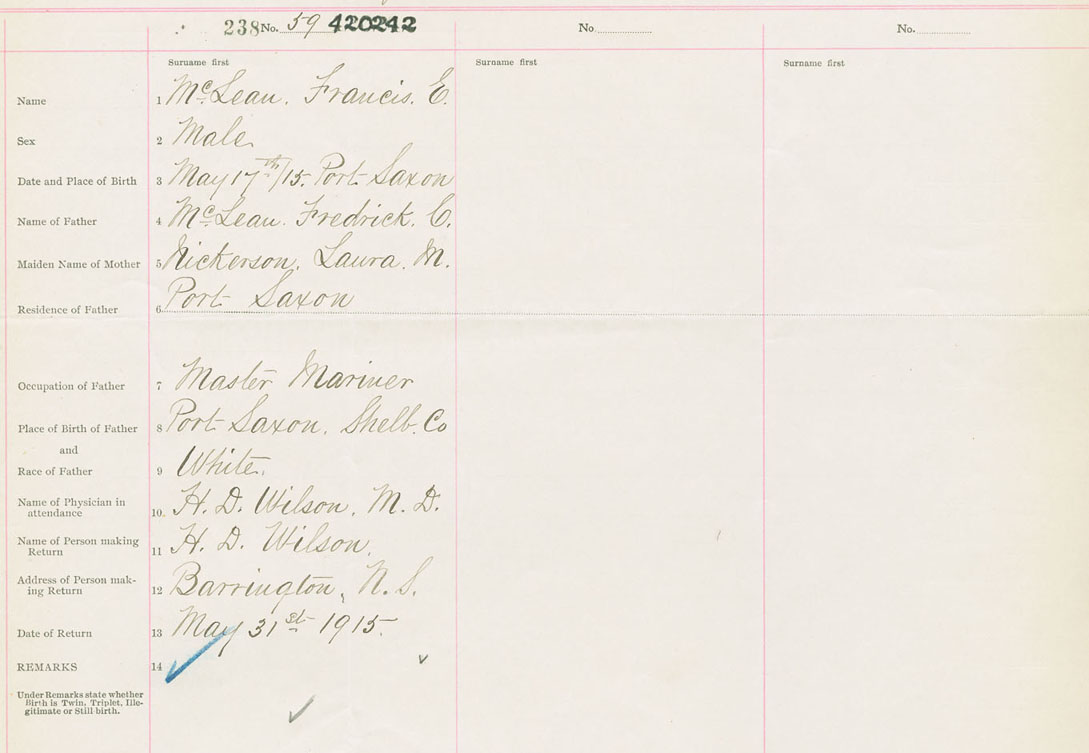 238 No. 59 420242 No. No.
Surname first Surname first Surname first
Name 1 McLean. Francis. E.
Sex 2 Male
Date and Place of Birth 3 May 17th/15. Port Saxon
Name of Father 4 McLean. Fredrick. C.
Maiden Name of Mother 5 Nickerson, Laura. M.
Residence of Father 6 Port Saxon
Occupation of Father 7 Master Mariner
Place of Birth of Father 8 Port Saxon. Shelb. Co
and
Race of Father 9 White.
Name of Physician in
attendance 10 H. D. Wilson, M. D.
Name of Person making
Return 11 H. D. Wilson,
Address of Person mak-
ing Return 12 Barrington, N. S.
Date of Return 13 May 31st 1915.
REMARKS 14
Under Remarks state whether
Birth is Twin, Triplet, Ille-
gitimate or Still-birth.